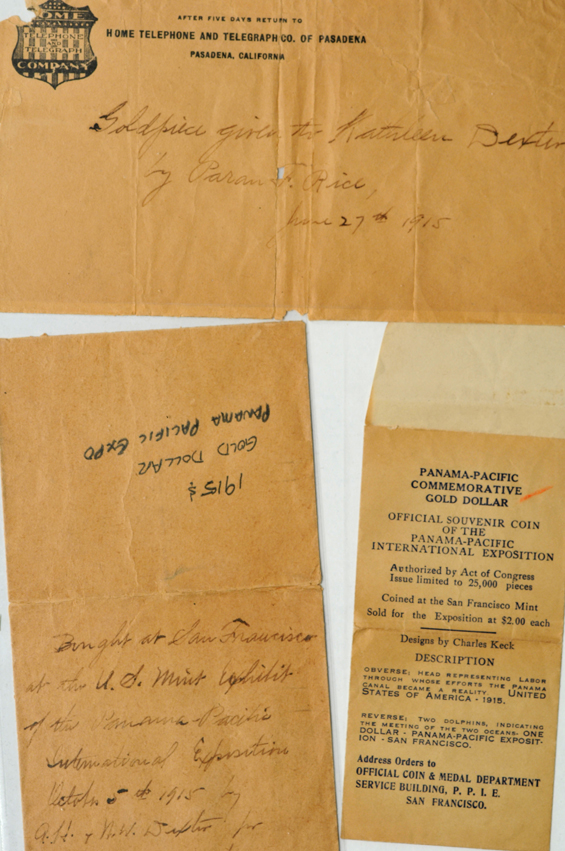 HOME
TELEPHONE
AND
TELEGRAPH
COMPANY
AFTER FIVE DAYS RETURN TO
HOME TELEPHONE AND TELEGRAPH CO. OF PASADENA
PASADENA, CALIFORNIA
Goldpiece given to Kathleen Dexter
by Paran F. Rice,
June 27th 1915
1915 $
GOLD DOLLAR
PANAMA PACIFIC EXPO
Bought at San Francisco
at the U.S. Mint Exhibit
of the Panama-Pacific
International Exposition
October 5th 1915 by
A.H. & N.W. Dexter for
PANAMA-PACIFIC
COMMEMORATIVE
GOLD DOLLAR
OFFICIAL SOUVENIR COIN
OF THE
PANAMA-PACIFIC
INTERNATIONAL EXPOSITION
Authorized by Act of Congress
Issue limited to 25,000 pieces
Coined at the San Francisco Mint
Sold for the Exposition at $2.00 each
Designs by Charles Keck
DESCRIPTION
OBVERSE: HEAD REPRESENTING LABOR
THROUGH WHOSE EFFORTS THE PANAMA
CANAL BECAME A REALITY. UNITED
STATES OF AMERICA - 1915.
REVERSE: TWO DOLPHINS, INDICATING
THE MEETING OF THE TWO OCEANS. ONE
DOLLAR - PANAMA-PACIFIC EXPOSIT-
ION - SAN FRANCISCO.
Address Orders to
OFFICIAL COIN & MEDAL DEPARTMENT
SERVICE BUILDING, P. P. I. E.
SAN FRANCISCO.